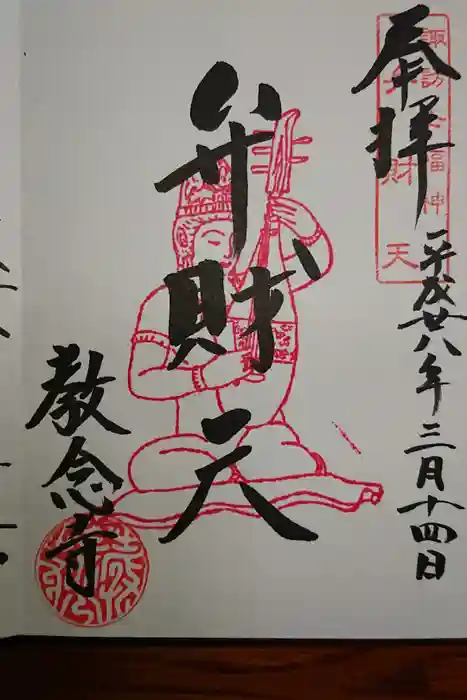 奉拝
諏訪七福神
弁財天
平成廿八年三月十四日
弁財天
教念寺